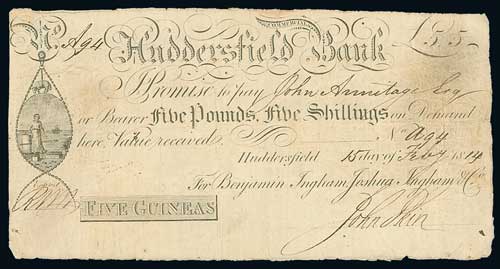 COMMERCIAL
No. A94 Huddersfield Bank £5,5
I Promise to pay John Armitage Esq
or Bearer Five Pounds, Five Shillings on Demand
here, Value received
No A94
Huddersfield 15 day of Feby 1814
For Benjamin Ingham, Joshua Ingham & Co.
FIVE GUINEAS
John